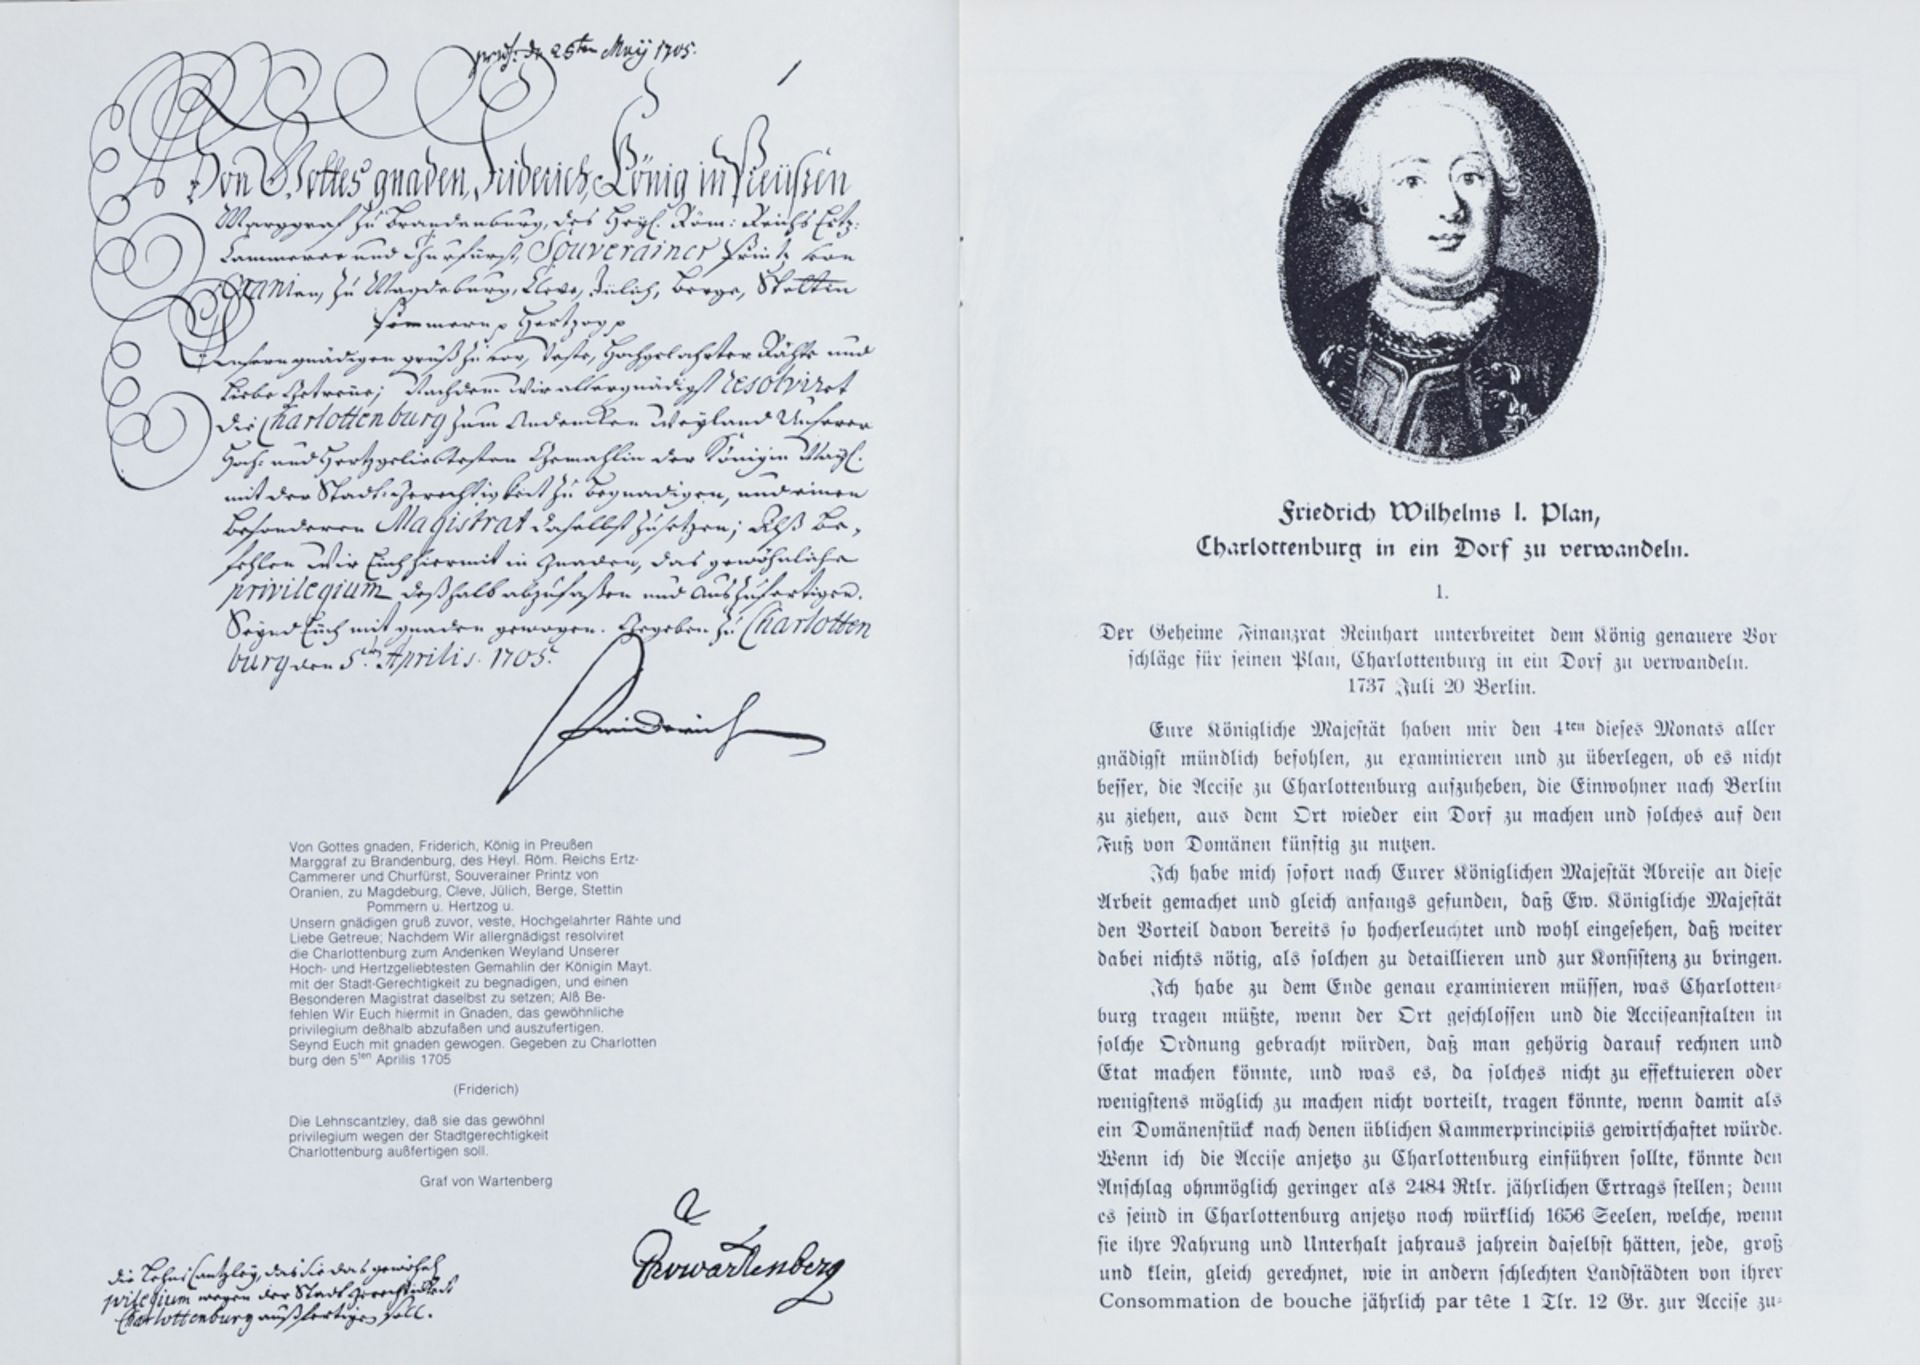 den 25ten Maÿ 1705.
Von Gottes gnaden, Friderich, König in Preüßen
Marggraf zu Brandenburg, des Heyl. Röm: Reichs Ertz-
Cammerer und Churfürst, Souverainer Printz von
Oranien, zu Magdeburg, Cleve, Jülich, Berge, Stettin
Pommern p Hertzog p
Unsern gnädigen gruß zuvor, Veste, Hochgelahrter Rähte und
Liebe Getreue; Nachdem Wir allergnädigst resolviret
die Charlottenburg zum Andencken Weyland Unserer
Hoch- und Hertzgeliebtesten Gemahlin der Königin Mayt.
mit der Stadt-Gerechtigkeit zu begnadigen, und einen
besonderen Magistrat daselbst zu setzen; Alß Be-
fehlen Wir Euch hiermit in Gnaden, das gewöhnliche
privilegium deßhalb abzufaßen und auszufertigen.
Seynd Euch mit gnaden gewogen. Gegeben zu Charlotten
burg den 5ten Aprilis. 1705.
Friderich
Von Gottes gnaden, Friderich, König in Preußen
Marggraf zu Brandenburg, des Heyl. Röm. Reichs Ertz-
Cammerer und Churfürst, Souverainer Printz von
Oranien, zu Magdeburg, Cleve, Jülich, Berge, Stettin
Pommern u. Hertzog u.
Unsern gnädigen gruß zuvor, veste, Hochgelahrter Rähte und
Liebe Getreue; Nachdem Wir allergnädigst resolviret
die Charlottenburg zum Andenken Weyland Unserer
Hoch- und Hertzgeliebtesten Gemahlin der Königin Mayt.
mit der Stadt-Gerechtigkeit zu begnadigen, und einen
Besonderen Magistrat daselbst zu setzen; Alß Be-
fehlen Wir Euch hiermit in Gnaden, das gewöhnliche
privilegium deßhalb abzufaßen und auszufertigen.
Seynd Euch mit gnaden gewogen. Gegeben zu Charlotten
burg den 5ten Aprilis 1705
(Friderich)
Die Lehnscantzley, daß sie das gewöhnl
privilegium wegen der Stadtgerechtigkeit
Charlottenburg außfertigen soll.
Graf von Wartenberg
die Lehns Cantzley, das sie das gewöhnl
privilegium wegen der Stadt Gerechtigkeit
Charlottenburg außfertigen soll.
Wartenberg
Friedrich Wilhelms I. Plan,
Charlottenburg in ein Dorf zu verwandeln.
1.
Der Geheime Finanzrat Reinhart unterbreitet dem König genauere Vor
schläge für seinen Plan, Charlottenburg in ein Dorf zu verwandeln.
1737 Juli 20 Berlin.
Eure Königliche Majestät haben mir den 4ten dieses Monats aller
gnädigst mündlich befohlen, zu examinieren und zu überlegen, ob es nicht
besser, die Accise zu Charlottenburg aufzuheben, die Einwohner nach Berlin
zu ziehen, aus dem Ort wieder ein Dorf zu machen und solches auf den
Fuß von Domänen künftig zu nutzen.
Ich habe mich sofort nach Eurer Königlichen Majestät Abreise an diese
Arbeit gemachet und gleich anfangs gefunden, daß Ew. Königliche Majestät
den Vorteil davon bereits so hocherleuchtet und wohl eingesehen, daß weiter
dabei nichts nötig, als solchen zu detaillieren und zur Konsistenz zu bringen.
Ich habe zu dem Ende genau examinieren müssen, was Charlotten-
burg tragen müßte, wenn der Ort geschlossen und die Acciseanstalten in
solche Ordnung gebracht würden, daß man gehörig darauf rechnen und
Etat machen könnte, und was es, da solches nicht zu effektuieren oder
wenigstens möglich zu machen nicht vorteilt, tragen könnte, wenn damit als
ein Domänenstück nach denen üblichen Kammerprincipiis gewirtschaftet würde.
Wenn ich die Accise anjetzo zu Charlottenburg einführen sollte, könnte den
Anschlag ohnmöglich geringer als 2484 Rtlr. jährlichen Ertrags stellen; denn
es seind in Charlottenburg anjetzo noch würklich 1656 Seelen, welche, wenn
sie ihre Nahrung und Unterhalt jahraus jahrein daselbst hätten, jede, groß
und klein, gleich gerechnet, wie in andern schlechten Landstädten von ihrer
Consommation de bouche jährlich par tête 1 Tlr. 12 Gr. zur Accise zu-